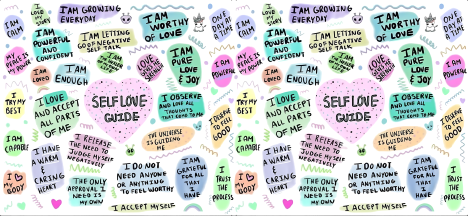 I AM CALM
I AM GROWING
EVERYDAY
I AM
WORTHY
OF LOVE
ONE
DAY AT
A TIME
I AM
POWERFUL
AND
CONFIDENT
I AM LETTING
GO OF NEGATIVE
SELF TALK
MY
PEACE IS
MY POWER
I AM
LOVED
I AM
ENOUGH
I AM
PURE
LOVE
& JOY
I AM
POWERFUL
I TRY MY
BEST
I LOVE
AND ACCEPT
ALL PARTS
OF ME
SELF LOVE
GUIDE
I OBSERVE
AND LOVE ALL
THOUGHTS
THAT COME TO ME
I DESERVE TO
FEEL
GOOD
I AM
CAPABLE
THE UNIVERSE
IS GUIDING
ME
I HAVE
A WARM
&
CARING
HEART
I RELEASE
THE NEED TO
JUDGE MYSELF
NEGATIVELY
I
MY
BODY
THE ONLY
APPROVAL I
NEED IS
MY OWN
I DO NOT
NEED ANYONE
OR ANYTHING
TO FEEL WORTHY
I AM
GRATEFUL
FOR ALL
THAT
I HAVE
I TRUST
THE
PROCESS
I ACCEPT MYSELF
I AM CALM
I AM GROWING
EVERYDAY
I AM
WORTHY
OF LOVE
ONE
DAY AT
A TIME
I AM
POWERFUL
AND
CONFIDENT
I AM LETTING
GO OF NEGATIVE
SELF TALK
MY
PEACE IS
MY POWER
I AM
LOVED
I AM
ENOUGH
I AM
PURE
LOVE
& JOY
I AM
POWERFUL
I TRY MY
BEST
I LOVE
AND ACCEPT
ALL PARTS
OF ME
SELF LOVE
GUIDE
I OBSERVE
AND LOVE ALL
THOUGHTS
THAT COME TO ME
I DESERVE TO
FEEL
GOOD
I AM
CAPABLE
THE UNIVERSE
IS GUIDING
ME
I HAVE
A WARM
&
CARING
HEART
I RELEASE
THE NEED TO
JUDGE MYSELF
NEGATIVELY
I
MY
BODY
THE ONLY
APPROVAL I
NEED IS
MY OWN
I DO NOT
NEED ANYONE
OR ANYTHING
TO FEEL WORTHY
I AM
GRATEFUL
FOR ALL
THAT
I HAVE
I TRUST
THE
PROCESS
I ACCEPT MYSELF